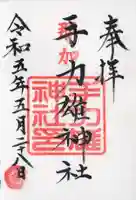 奉拝
那加
手力雄神社
手力雄神社印
令和五年五月二八日